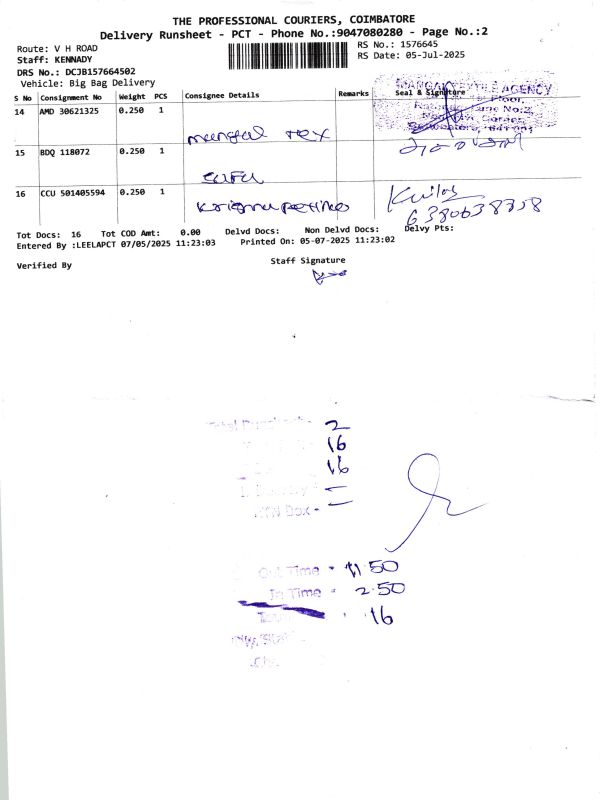 THE PROFESSIONAL COURIERS, COIMBATORE
Delivery Runsheet - PCT - Phone No.:9047080280 - Page No.:2
Route: V H ROAD
RS No.: 1576645
Staff: KENNADY
RS Date: 05-Jul-2025
DRS No.: DCJB157664502
Vehicle: Big Bag Delivery
S No Consignment No Weight PCS Consignee Details Remarks Seal & Signature
AGENCY
14 AMD 30621325 0.250 1
15 BDQ 118072 0.250 1
16 CCU 501405594 0.250 1
6380638358
Tot Docs: 16 Tot COD Amt: 0.00 Delvd Docs: Non Delvd Docs: Delvy Pts:
Entered By :LEELAPCT 07/05/2025 11:23:03 Printed On: 05-07-2025 11:23:02
Verified By
Staff Signature
2
16
16
Box -
Out Time - 11.50
In Time - 2.50
16